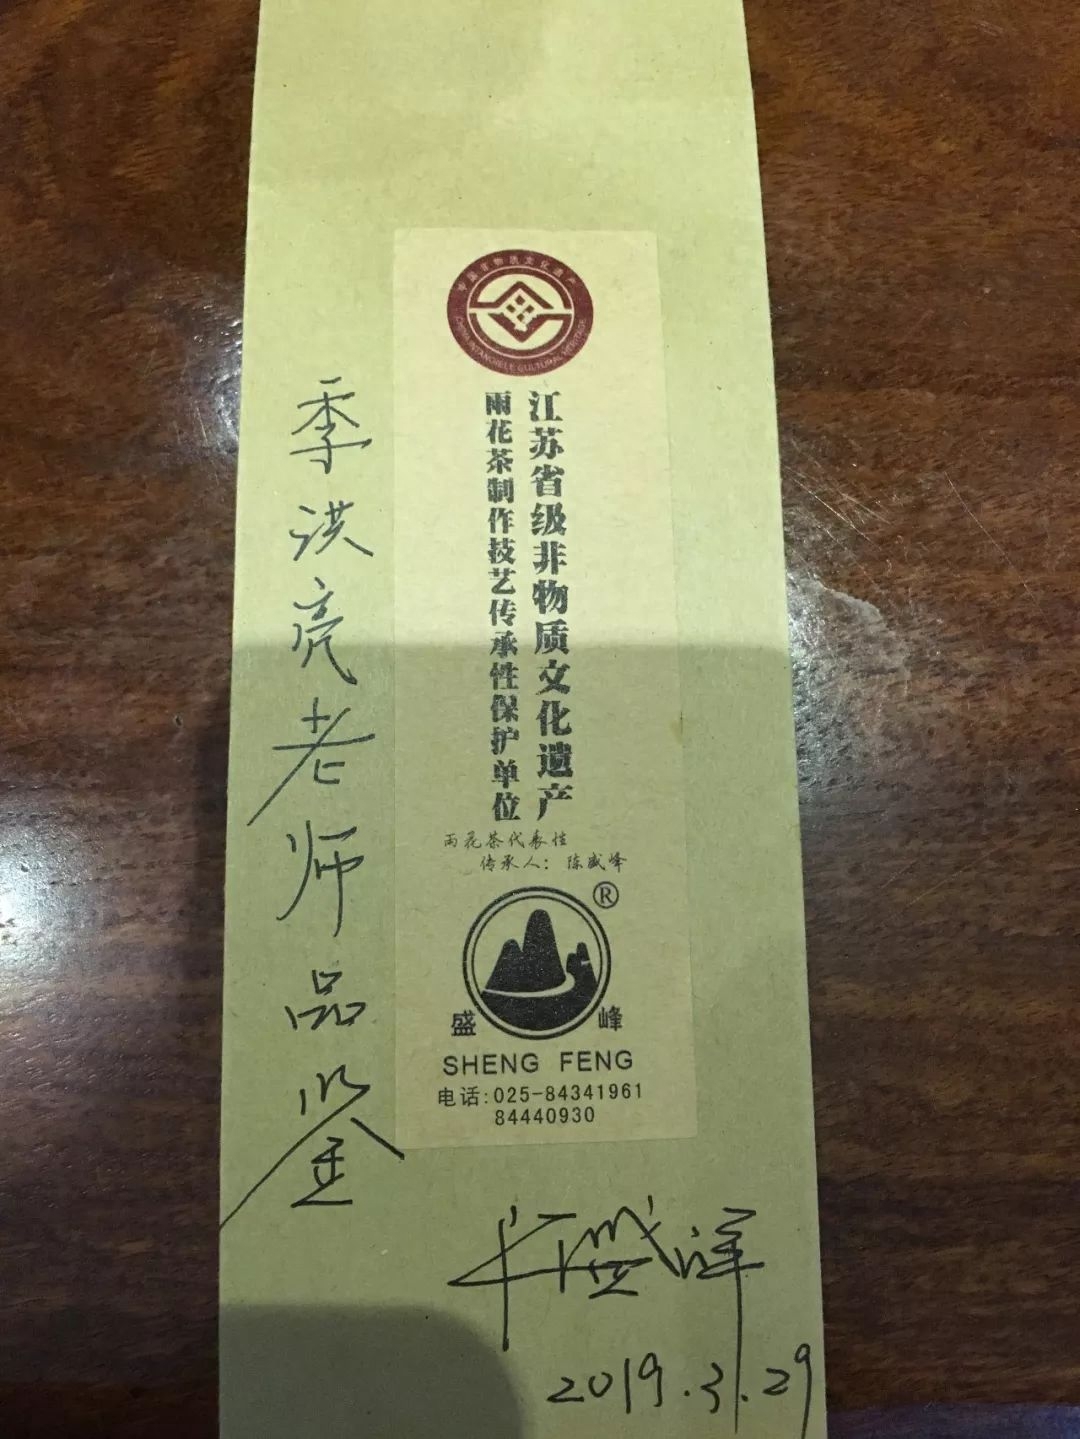 中国非物质文化遗产
CHINA INTANGIBLE CULTURAL HERITAGE
江苏省级非物质文化遗产
雨花茶制作技艺传承性保护单位
雨花茶代表性
传承人：陈盛峰
®
盛 峰
SHENG FENG
电话:025-84341961
84440930
季洪亮老师品鉴
2019.3.29